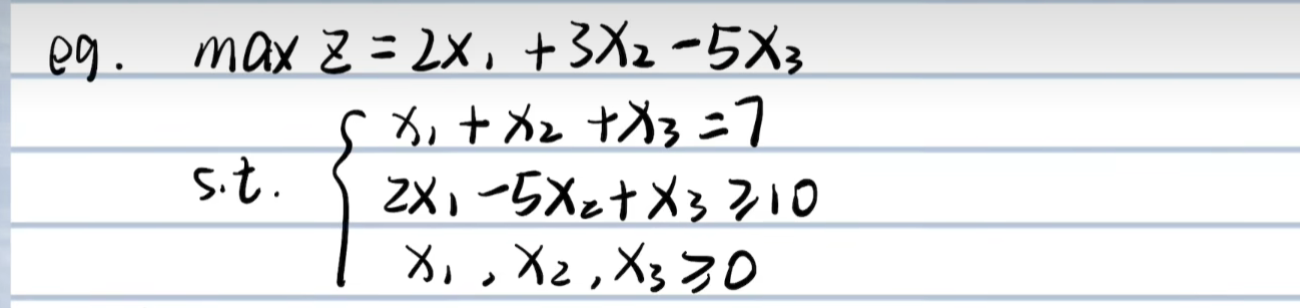 eg. max z = 2x₁ + 3x₂ - 5x₃
x₁ + x₂ + x₃ = 7
s.t. { 2x₁ - 5x₂ + x₃ ≥ 10
x₁, x₂, x₃ ≥ 0